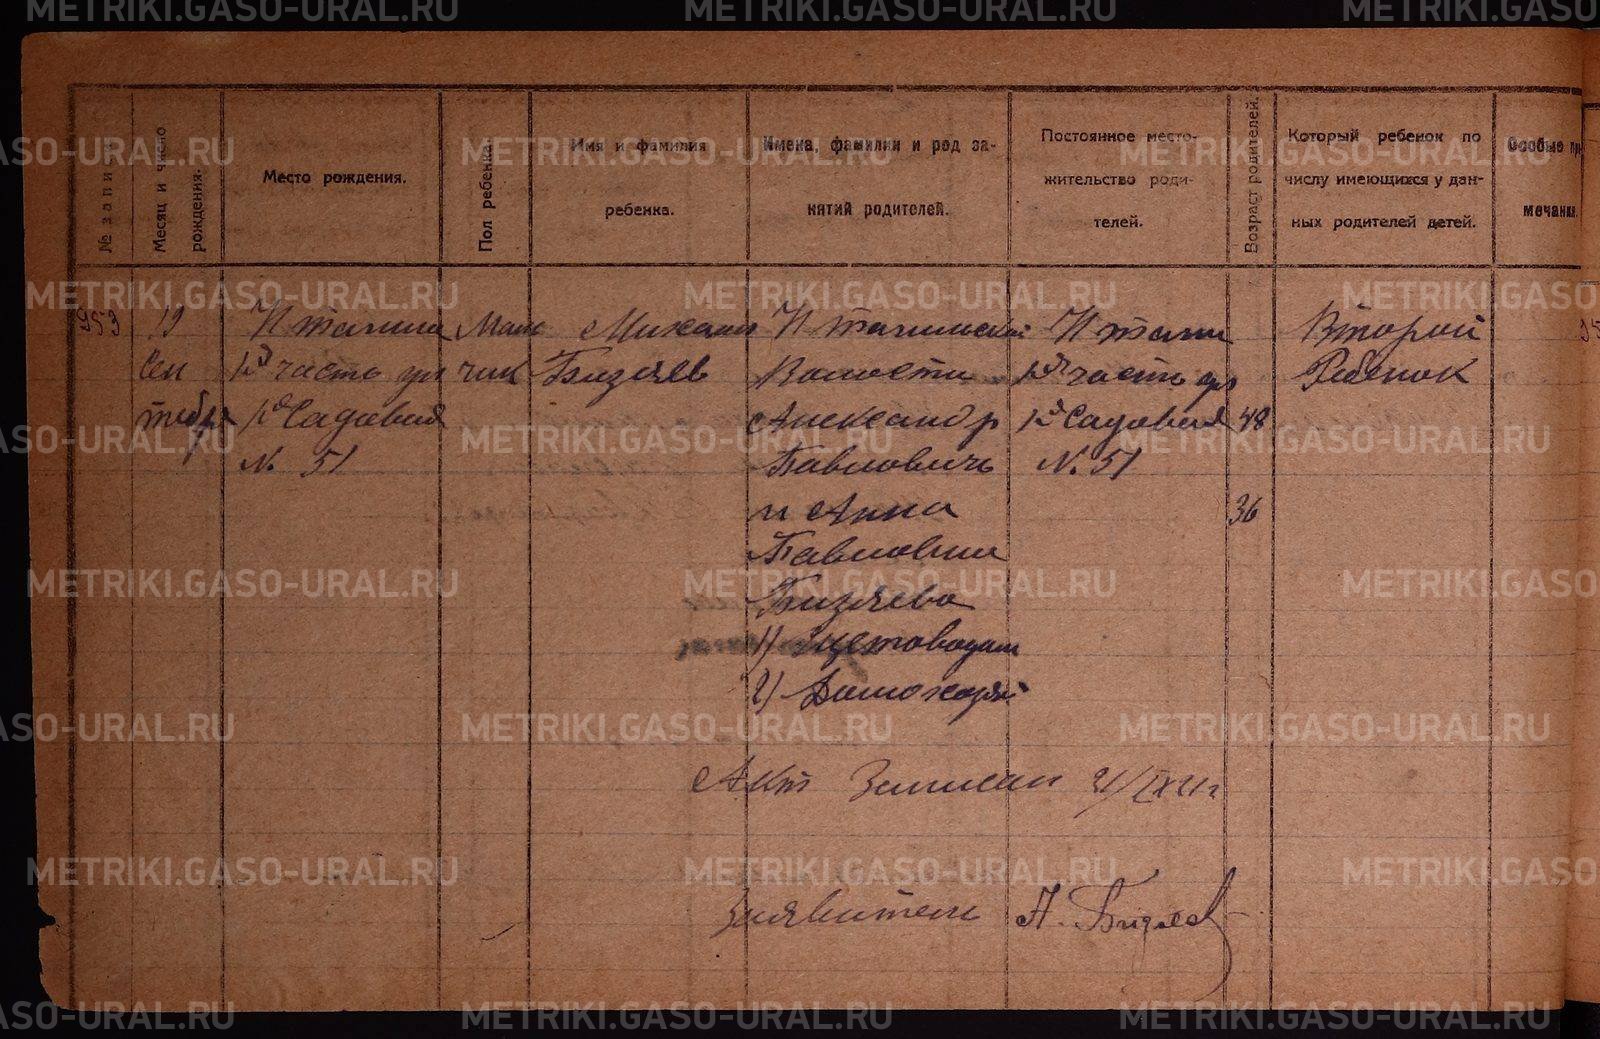 № записи
Месяц и число
рождения.
Место рождения.
Пол ребенка.
Имя и фамилия
ребенка.
Имена, фамилии и род за-
нятий родителей.
Постоянное место-
жительство роди-
телей.
Возраст родителей.
Который ребенок по
числу имеющихся у дан-
ных родителей детей.
Особые при-
мечания.
953
19
Сен
тебря
часть ул
Садовая
№ 51
Маль
чик
Михаил
Бизяев
Волости
Александр
Павлович
и Анна
Павловна
Бизяева
1) Щетоводам
2) Домохозяй
часть ул
Садовая
№ 51
48
36
Второй
Ребенок
Акт Записан 21/IX 21 г
Заявитель А. Бизяев
METRIKI.GASO-URAL.RU